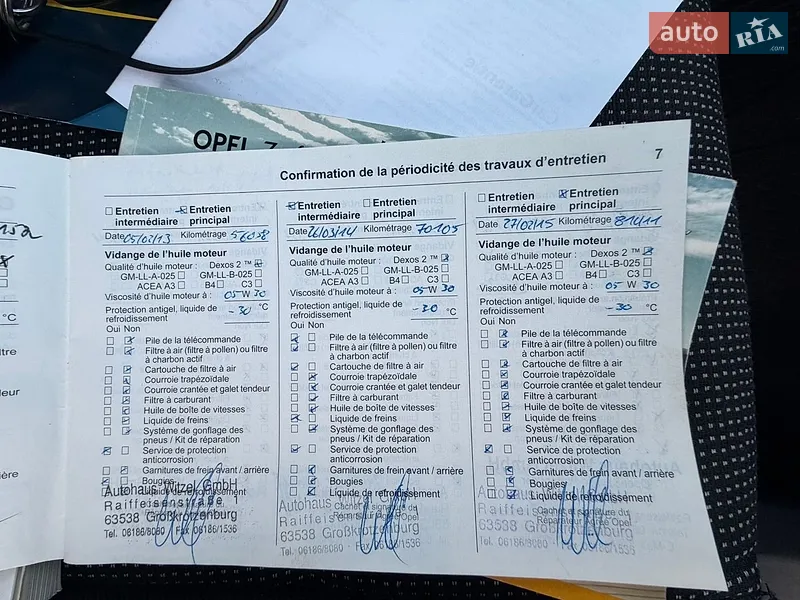 auto
RIA
.com
OPEL
Confirmation de la périodicité des travaux d'entretien
7
Entretien intermédiaire
Entretien principal
Date 05/02/13 Kilométrage 56058
Vidange de l'huile moteur
Qualité d'huile moteur: Dexos 2 ™
GM-LL-A-025 GM-LL-B-025
ACEA A3 B4 C3
Viscosité d'huile moteur à : 05 W 30
Protection antigel, liquide de
refroidissement -30 °C
Oui Non
Pile de la télécommande
Filtre à air (filtre à pollen) ou filtre
à charbon actif
Cartouche de filtre à air
Courroie trapézoïdale
Courroie crantée et galet tendeur
Filtre à carburant
Huile de boîte de vitesses
Liquide de freins
Système de gonflage des
pneus / Kit de réparation
Service de protection
anticorrosion
Garnitures de frein avant / arrière
Bougies
Liquide de refroidissement
Autohaus Witzel GmbH
Raiffeisenstraße 1
63538 Großkrotzenburg
Tel. 06186/8080 Fax 06186/1536
Entretien intermédiaire
Entretien principal
Date 26/03/14 Kilométrage 70105
Vidange de l'huile moteur
Qualité d'huile moteur: Dexos 2 ™
GM-LL-A-025 GM-LL-B-025
ACEA A3 B4 C3
Viscosité d'huile moteur à : 05 W 30
Protection antigel, liquide de
refroidissement -30 °C
Oui Non
Pile de la télécommande
Filtre à air (filtre à pollen) ou filtre
à charbon actif
Cartouche de filtre à air
Courroie trapézoïdale
Courroie crantée et galet tendeur
Filtre à carburant
Huile de boîte de vitesses
Liquide de freins
Système de gonflage des
pneus / Kit de réparation
Service de protection
anticorrosion
Garnitures de frein avant / arrière
Bougies
Liquide de refroidissement
Cachet et signature du
Autohaus
Raiffeisen
63538 Großkrotzenburg
Tel. 06186/8080
Entretien intermédiaire
Entretien principal
Date 27/02/15 Kilométrage 81411
Vidange de l'huile moteur
Qualité d'huile moteur: Dexos 2 ™
GM-LL-A-025 GM-LL-B-025
ACEA A3 B4 C3
Viscosité d'huile moteur à : 05 W 30
Protection antigel, liquide de
refroidissement -30 °C
Oui Non
Pile de la télécommande
Filtre à air (filtre à pollen) ou filtre
à charbon actif
Cartouche de filtre à air
Courroie trapézoïdale
Courroie crantée et galet tendeur
Filtre à carburant
Huile de boîte de vitesses
Liquide de freins
Système de gonflage des
pneus / Kit de réparation
Service de protection
anticorrosion
Garnitures de frein avant / arrière
Bougies
Liquide de refroidissement
Cachet et signature du
Réparateur Agréé Opel
Autohaus
Raiffeisen
63538 Großkrotzenburg
Tel. 06186/8080
°C